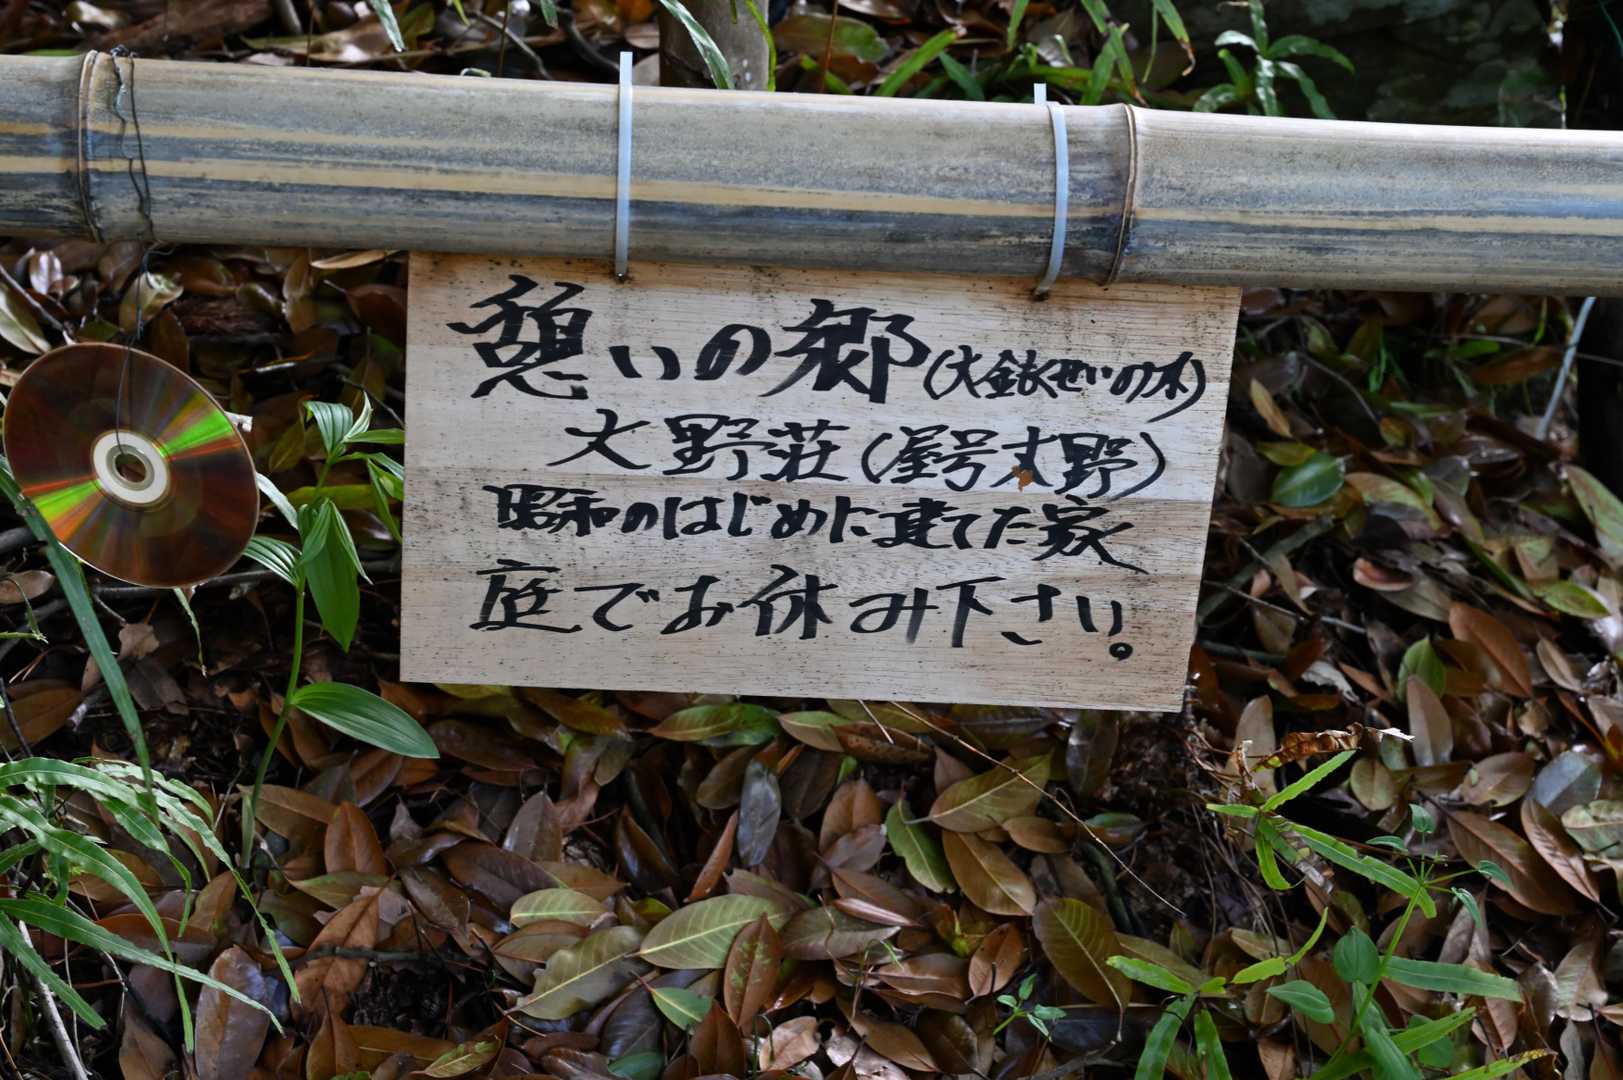 憩いの郷(大金せいの木)
大野荘(屋号大野)
昭和のはじめに建てた家
庭でお休み下さい。